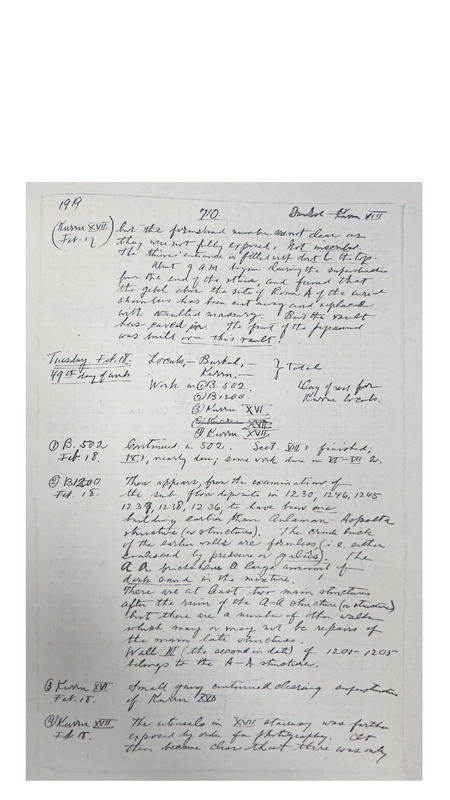 1919
710
Barkal - Kurru VIII
(Kurru XVII Feb. 17) but the forms and number not clear as
they were not fully exposed. Not inscribed.
The thieves' entrance is filled with dirt to the top.
About 9 A.M. began clearing the superstructure
from the end of the stairs, and found that
the gebel above the site of Room A of the
chambers has been cut away and replaced
with vaulted masonry. But the vault
has caved in. The front of the pyramid
was built over this vault.
Tuesday Feb. 18. Locals, - Barkal, -
49th day of work Kurru, - } total
Work on ① B. 502. Day of rest for
② B 1200. Kurru locals.
③ Kurru XVI
④ Kurru XVII
① B. 502 Continued in 502. Sect. VIII 1 finished;
Feb 18. IX 1, nearly done; some work done in VI-VII 2.
② B1200 There appears, from the examination of
Feb. 18. the sub floor deposits in 1230, 1246, 1245
1238, 1236, to have been one
building earlier than Amlaman Aspalta
structure (or structures). The crude brick
of the earlier walls are formless (i.e. either
coalesced by pressure or ). The
A A bricks have a large amount of
dark sand in the mixture.
There are at least two main structures
after the ruin of the A-A structure (or structures)
but there are a number of other walls
which may or may not be repairs of
the main late structures.
Wall III (the second in date) of 1201-1205
belongs to the A-A structure.
③ Kurru XVI Small gang continued clearing superstructure
Feb. 18. of Kurru XVI
④ Kurru XVII The utensils in XVII stairway was further
Feb 18. exposed by order for photography. It
then became clear that there was only